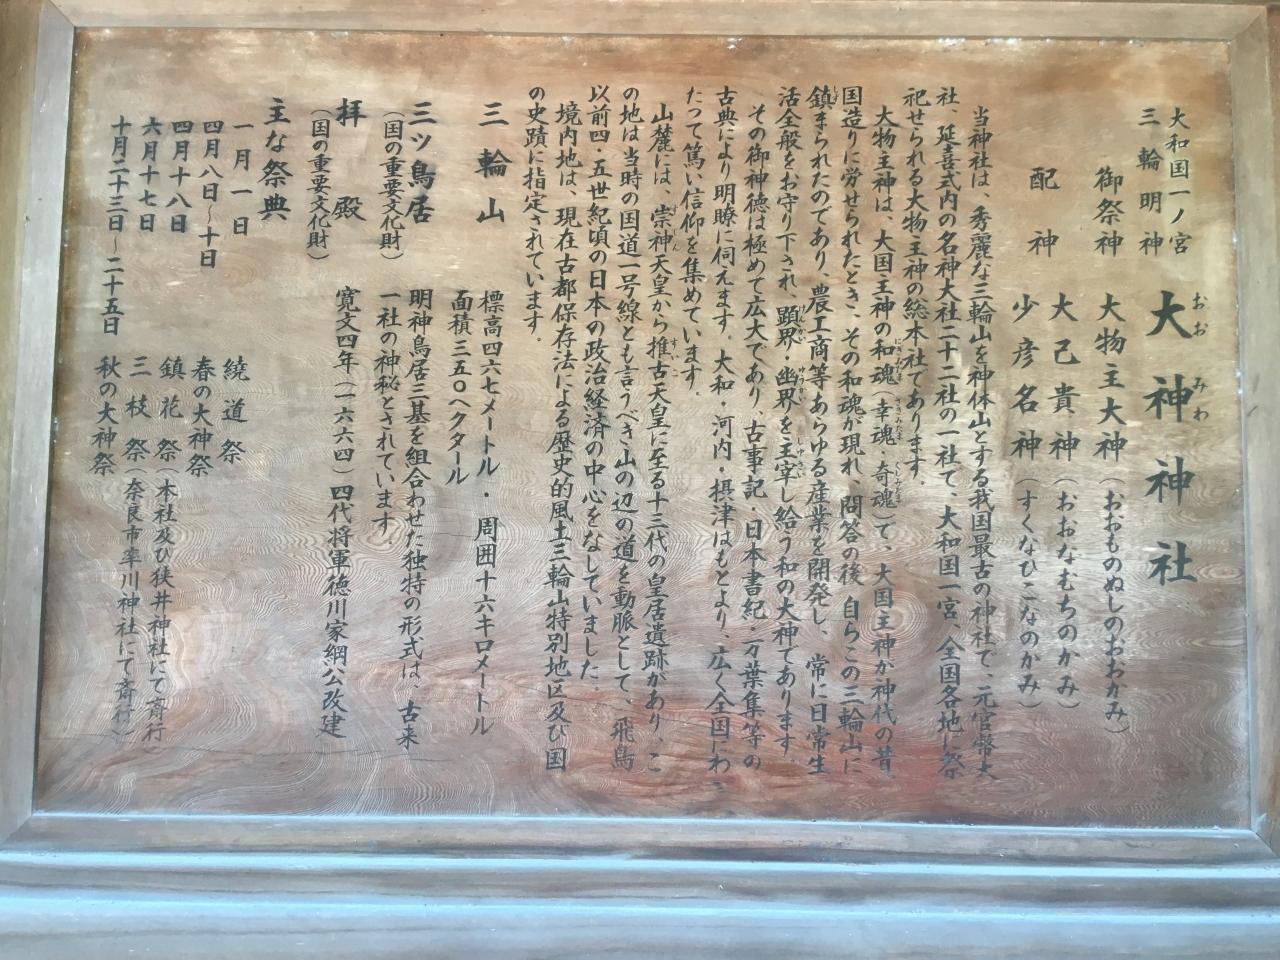 大和国一ノ宮
三輪明神
大神神社
おおみわ
御祭神 大物主大神（おおものぬしのおおかみ）
配神 大己貴神（おおなむちのかみ）
少彦名神（すくなひこなのかみ）
当神社は、秀麗な三輪山を神体山とする我国最古の神社で、元官幣大
社、延喜式内の名神大社二十二社の一社で、大和国一宮、全国各地に祭
祀せられる大物主神の総本社であります。
大物主神は、大国主神の和魂（幸魂・奇魂）で、大国主神が神代の昔、
国造りに労せられたとき、その和魂が現れ、問答の後、自らこの三輪山に
鎮まられたのであり、農工商等あらゆる産業を開発し、常に日常生
活全般をお守り下され、顕界・幽界を主宰し給う和の大神であります。
その御神徳は極めて広大であり、古事記・日本書紀・万葉集等の
古典により明瞭に伺えます。大和・河内・摂津はもとより、広く全国にわ
たって篤い信仰を集めています。
山麓には、崇神天皇から推古天皇に至る十三代の皇居遺跡があり、こ
の地は当時の国道一号線とも言うべき山の辺の道を動脈として、飛鳥
以前四・五世紀頃の日本の政治経済の中心をなしていました。
境内地は、現在古都保存法による歴史的風土三輪山特別地区及び国
の史蹟に指定されています。
三輪山 標高四六七メートル・周囲十六キロメートル
面積三五〇ヘクタール
三ツ鳥居 明神鳥居三基を組合わせた独特の形式は、古来
（国の重要文化財） 一社の神秘とされています
拝殿 寛文四年（一六六四）四代将軍徳川家綱公改建
（国の重要文化財）
主な祭典
一月一日 繞道祭
四月八日～十日 春の大神祭
四月十八日 鎮花祭（本社及び狭井神社にて斎行）
六月十七日 三枝祭（奈良市率川神社にて斎行）
十月二十三日～二十五日 秋の大神祭